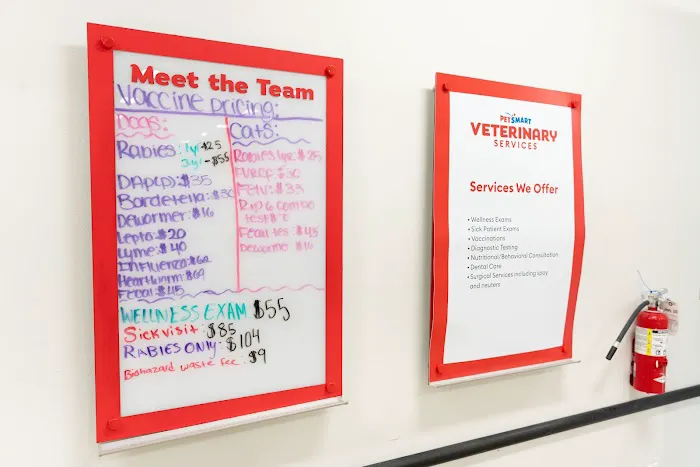 Meet the Team
Vaccine pricing:
Dogs:
Rabies: 1yr $25
3yr - $55
DAP(P): $35
Bordetella: $30
Dewormer: $16
Lepto: $20
Lyme: $40
Influenza: $62
Heartworm: $69
Fecal: $45
Cats:
Rabies 1yr: $25
FVRCP: $30
Felv: $33
combo
test
Fecal tes: $45
Dewormer $16
WELLNESS EXAM $55
Sick visit: $85
RABIES ONLY: $104
Biohazard waste fee: $9
PETSMART
VETERINARY
SERVICES
Services We Offer
• Wellness Exams
• Sick Patient Exams
• Vaccinations
• Diagnostic Testing
• Nutritional/Behavioral Consultation
• Dental Care
• Surgical Services including spay
and neuters